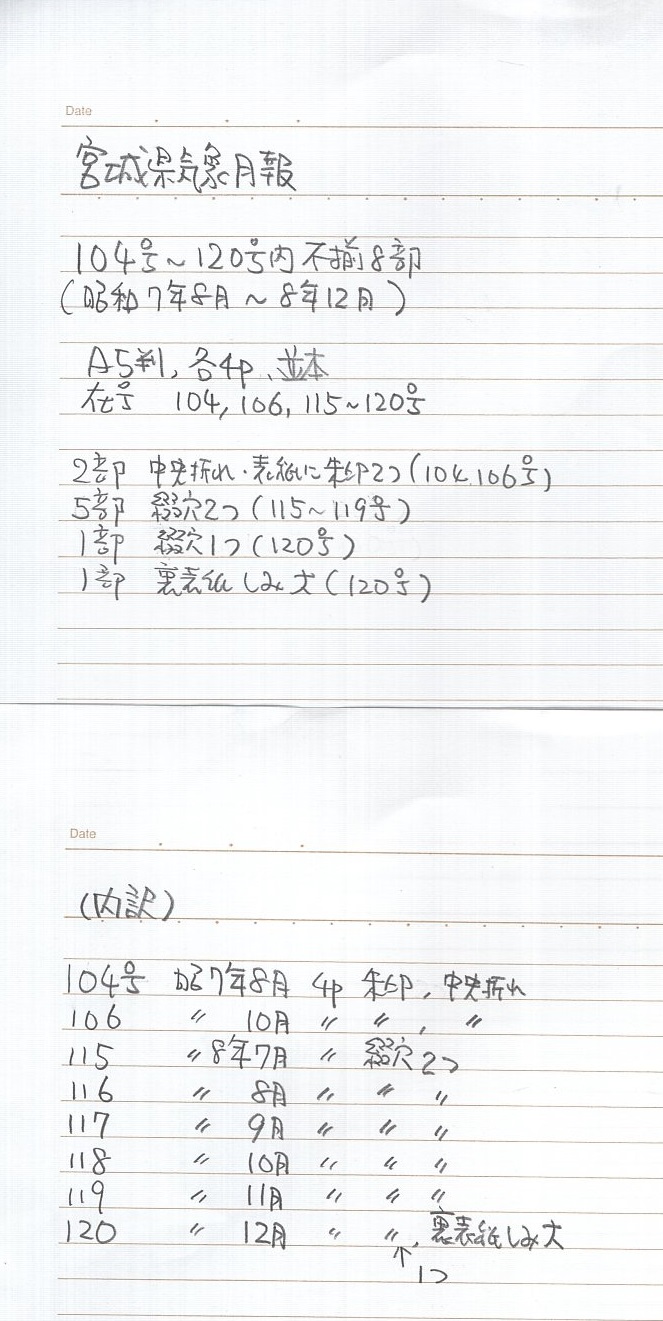 Date
宮城県気象月報
104号～120号内 不揃8部
(昭和7年8月～8年12月)
A5判, 各4p、並本
在号 104, 106, 115～120号
2部 中央折れ・表紙に朱印2つ(104, 106号)
5部 綴穴2つ(115～119号)
1部 綴穴1つ(120号)
1部 裏表紙しみ大(120号)
Date
(内訳)
104号 昭7年8月 4p 朱印, 中央折れ
106 〃 10月 〃 〃, 〃
115 〃 8年7月 〃 綴穴2つ
116 〃 8月 〃 〃 〃
117 〃 9月 〃 〃 〃
118 〃 10月 〃 〃 〃
119 〃 11月 〃 〃 〃
120 〃 12月 〃 〃, 裏表紙しみ大
↑
1つ